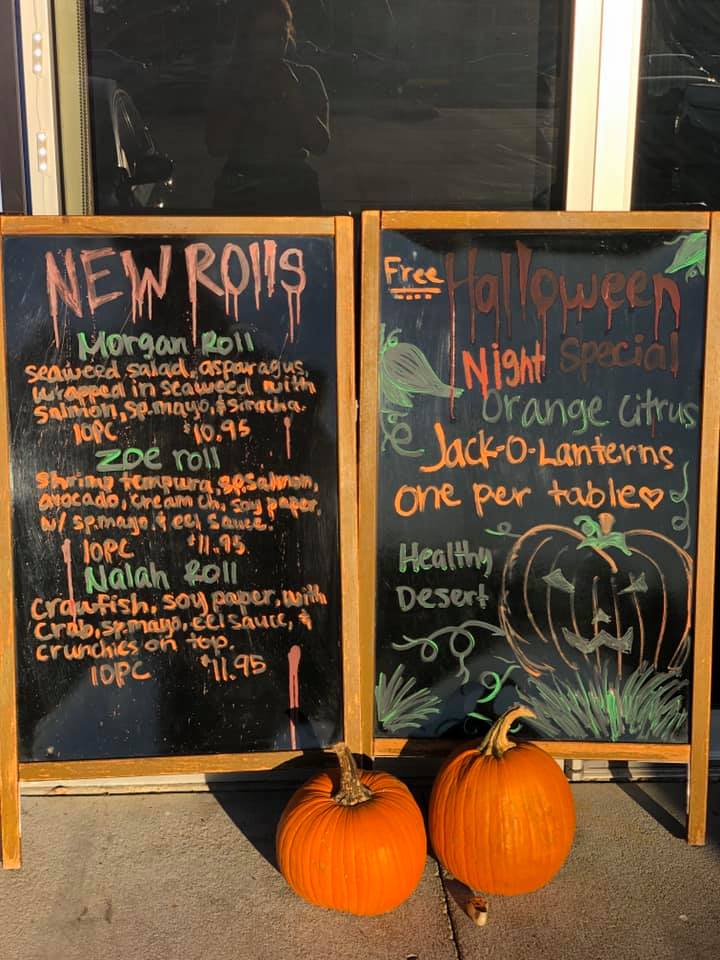 NEW ROllS
Morgan Roll
seaweed salad, asparagus,
wrapped in seaweed with
salmon, sp.mayo, & siracha.
10PC $10.95
Zoe roll
shrimp tempura, sp.salmon,
avocado, cream ch, soy paper,
w/ sp.mayo & eel sauce.
10PC $11.95
Nalah Roll
crawfish, soy paper, with
crab, sp.mayo, eel sauce, &
crunchies on top.
10PC $11.95
Free Halloween
Night special
orange citrus
Jack-O-Lanterns
one per table♡
Healthy
Desert